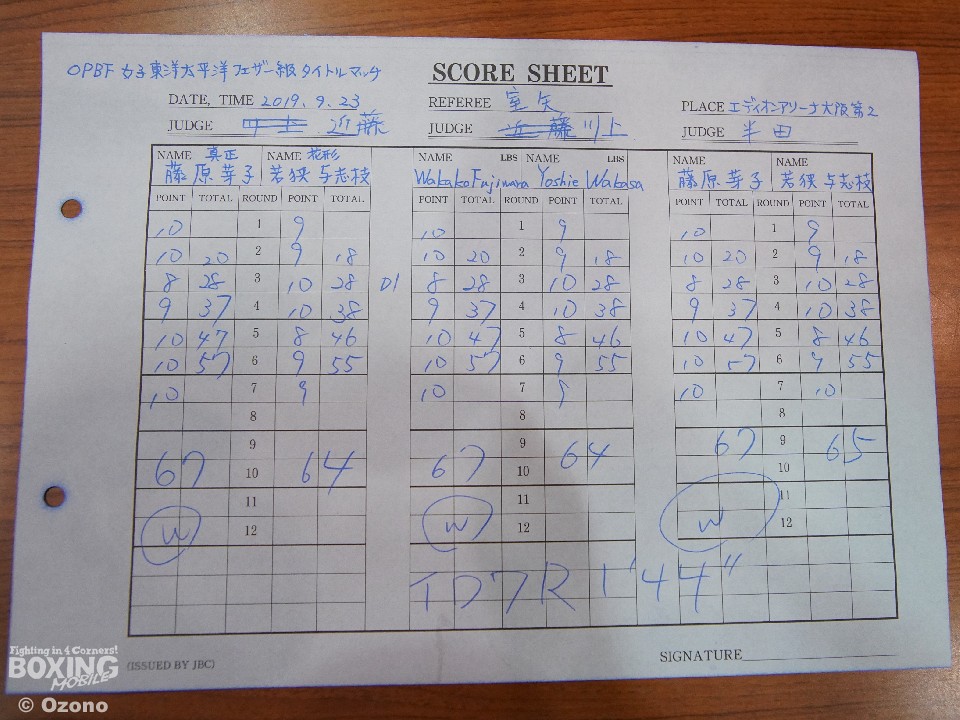 OPBF 女子東洋太平洋フェザー級タイトルマッチ
SCORE SHEET
DATE, TIME 2019.9.23
REFEREE 室矢
PLACE エディオンアリーナ大阪第2
JUDGE 川上 近藤
JUDGE 近藤 川上
JUDGE 半田
NAME 真正 NAME 花形 NAME LBS NAME LBS NAME NAME
藤原芽子 若狭与志枝 Wakako Fujiwara Yoshie Wakasa 藤原芽子 若狭与志枝
POINT TOTAL ROUND POINT TOTAL POINT TOTAL ROUND POINT TOTAL POINT TOTAL ROUND POINT TOTAL
10 1 9 10 1 9 10 1 9
10 20 2 9 18 10 20 2 9 18 10 20 2 9 18
8 28 3 10 28 D1 8 28 3 10 28 8 28 3 10 28
9 37 4 10 38 9 37 4 10 38 9 37 4 10 38
10 47 5 8 46 10 47 5 8 46 10 47 5 8 46
10 57 6 9 55 10 57 6 9 55 10 57 6 9 55
10 7 9 10 7 9 10 7 10
8 8 8
9 9 9
67 10 64 67 10 64 67 10 65
11 11 11
W 12 W 12 W 12
TD7R 1'44"
Fighting in 4 Corners!
BOXING
MOBILE
(ISSUED BY JBC)
SIGNATURE
© Ozono